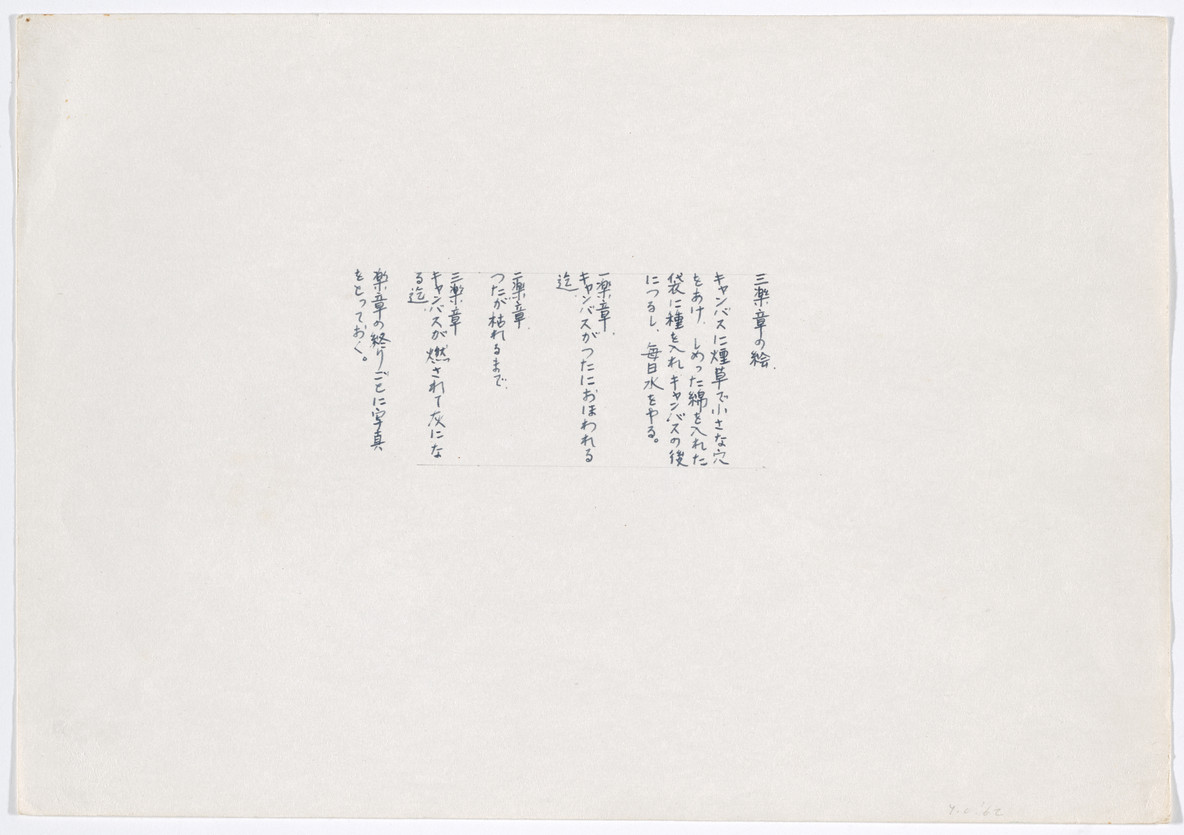 三楽章の絵.
キャンバスに煙草で小さな穴
をあけ、しめった綿を入れた
袋に種を入れキャンバスの後
につるし、毎日水をやる。
一楽章.
キャンバスがつたにおほわれる
迄.
二楽章.
つたが枯れるまで.
三楽章
キャンバスが燃されて灰にな
る迄.
楽章の終りごとに写真
をとっておく。